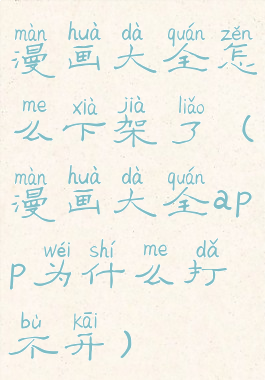 màn huà dà quán zěn
漫画大全怎
me xià jià liǎo
么下架了（
màn huà dà quán
漫画大全ap
wéi shí me dǎ
p为什么打
bù kāi
不开）